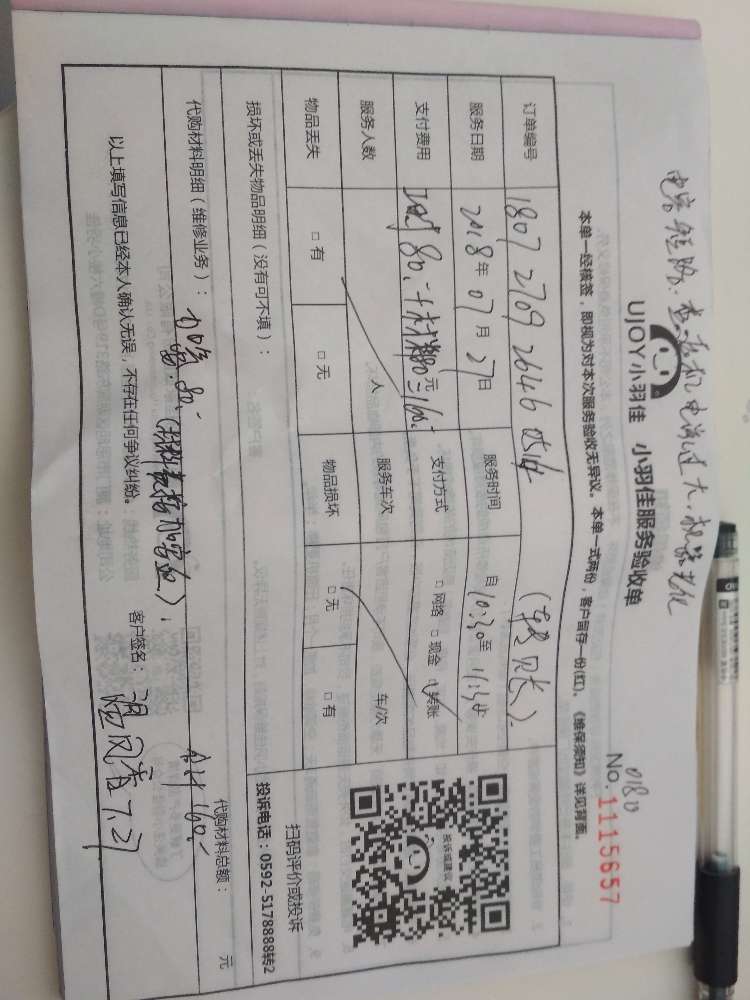 UJOY小羽佳 小羽佳服务验收单
0180
No. 1115657
本单一经核签，即视为对本次服务验收无异议。本单一式两份，客户留存一份(红)。《维保须知》详见背面。
订单编号 1807 2709 2646 0514
服务日期 2018年07月27日 服务时间 自10:30至11:30
支付费用 80. 元 =160. 支付方式 □网络 □现金 □转账
服务人数 人 服务车次 车/次
物品丢失 □有 □无 物品损坏 □无 □有
投诉建议
扫码评价或投诉
投诉电话：0592-5178888转2
损坏或丢失物品明细（没有可不填）：
代购材料明细（维修业务）： 代购材料总额： 元
80. 合计160.
以上填写信息已经本人确认无误，不存在任何争议纠纷。 客户签名： 7.27